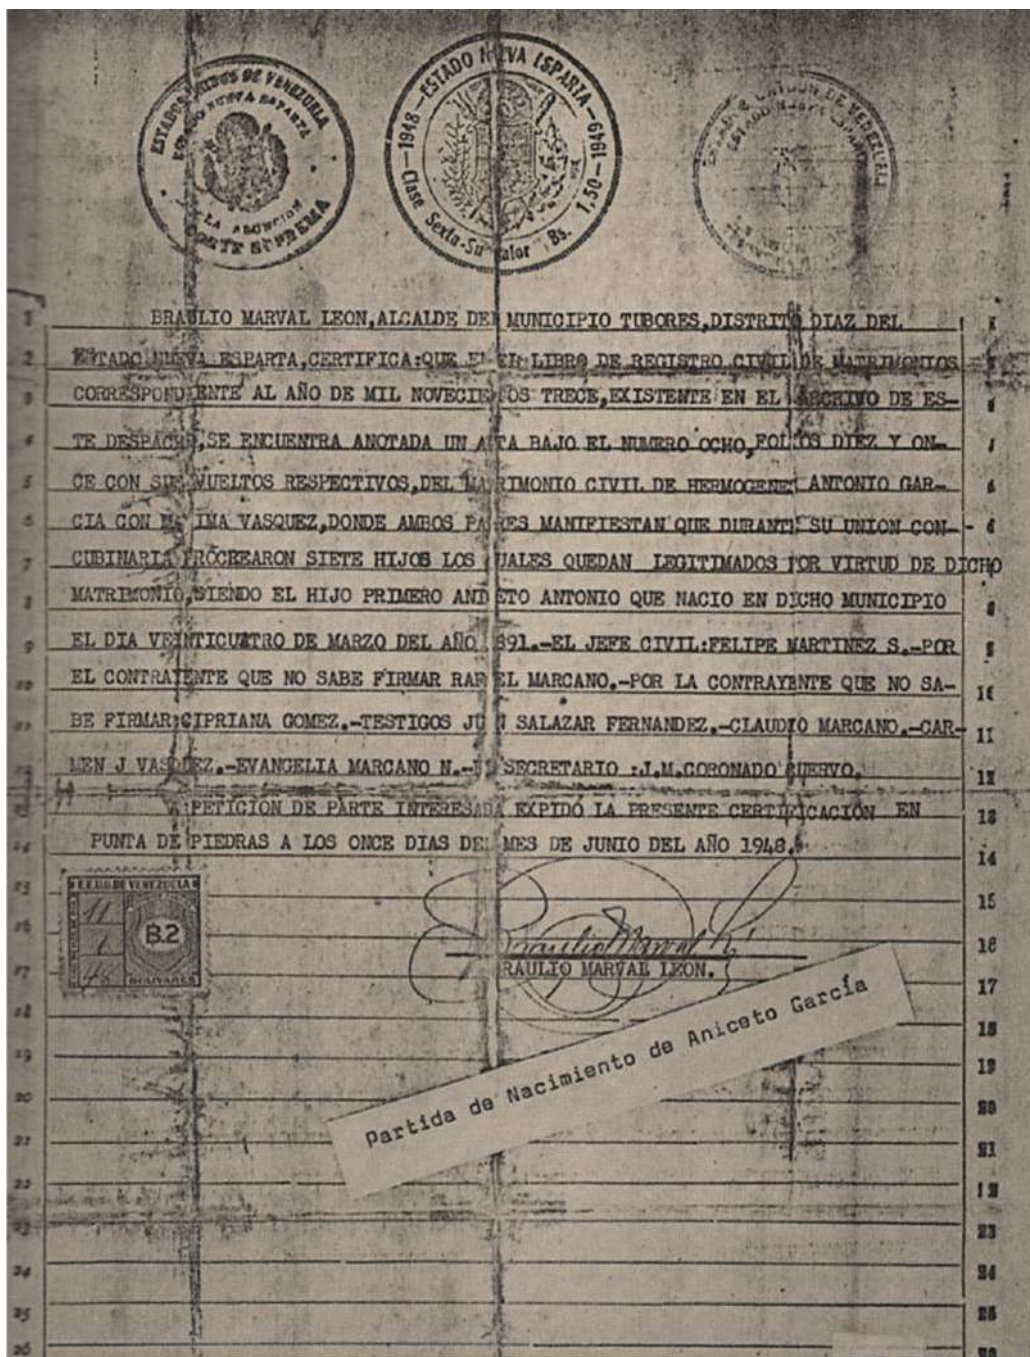 ESTADOS UNIDOS DE VENEZUELA
ESTADO NUEVA ESPARTA
LA ASUNCION
CORTE SUPREMA
1948-ESTADO NUEVA ESPARTA-1949
Clase Sexta-Su Valor Bs. 1,50
ESTADOS UNIDOS DE VENEZUELA
ESTADO NUEVA ESPARTA
BRAULIO MARVAL LEON,ALCALDE DEL MUNICIPIO TUBORES,DISTRITO DIAZ DEL
ESTADO NUEVA ESPARTA,CERTIFICA:QUE EN EL LIBRO DE REGISTRO CIVIL DE MATRIMONIOS
CORRESPONDIENTE AL AÑO DE MIL NOVECIENTOS TRECE,EXISTENTE EN EL ARCHIVO DE ES-
TE DESPACHO,SE ENCUENTRA ANOTADA UN ACTA BAJO EL NUMERO OCHO,FOLIOS DIEZ Y ON-
CE CON SUS VUELTOS RESPECTIVOS,DEL MATRIMONIO CIVIL DE HERMOGENES ANTONIO GAR-
CIA CON MAXIMA VASQUEZ,DONDE AMBOS PADRES MANIFIESTAN QUE DURANTE SU UNION CON-
CUBINARIA PROCREARON SIETE HIJOS LOS CUALES QUEDAN LEGITIMADOS POR VIRTUD DE DICHO
MATRIMONIO,SIENDO EL HIJO PRIMERO ANICETO ANTONIO QUE NACIO EN DICHO MUNICIPIO
EL DIA VEINTICUATRO DE MARZO DEL AÑO 1891.-EL JEFE CIVIL:FELIPE MARTINEZ S.-POR
EL CONTRAYENTE QUE NO SABE FIRMAR RAFAEL MARCANO.-POR LA CONTRAYENTE QUE NO SA-
BE FIRMAR:CIPRIANA GOMEZ.-TESTIGOS JUAN SALAZAR FERNANDEZ.-CLAUDIO MARCANO.-CAR-
MEN J VASQUEZ.-EVANGELIA MARCANO N.-EL SECRETARIO :J.M.CORONADO CUERVO.
A PETICION DE PARTE INTERESADA EXPIDO LA PRESENTE CERTIFICACIÓN EN
PUNTA DE PIEDRAS A LOS ONCE DIAS DEL MES DE JUNIO DEL AÑO 1948.
E.E.U.U. DE VENEZUELA
11
6
48
B.2
BOLIVARES
Braulio Marval L
BRAULIO MARVAL LEON.
Partida de Nacimiento de Aniceto García